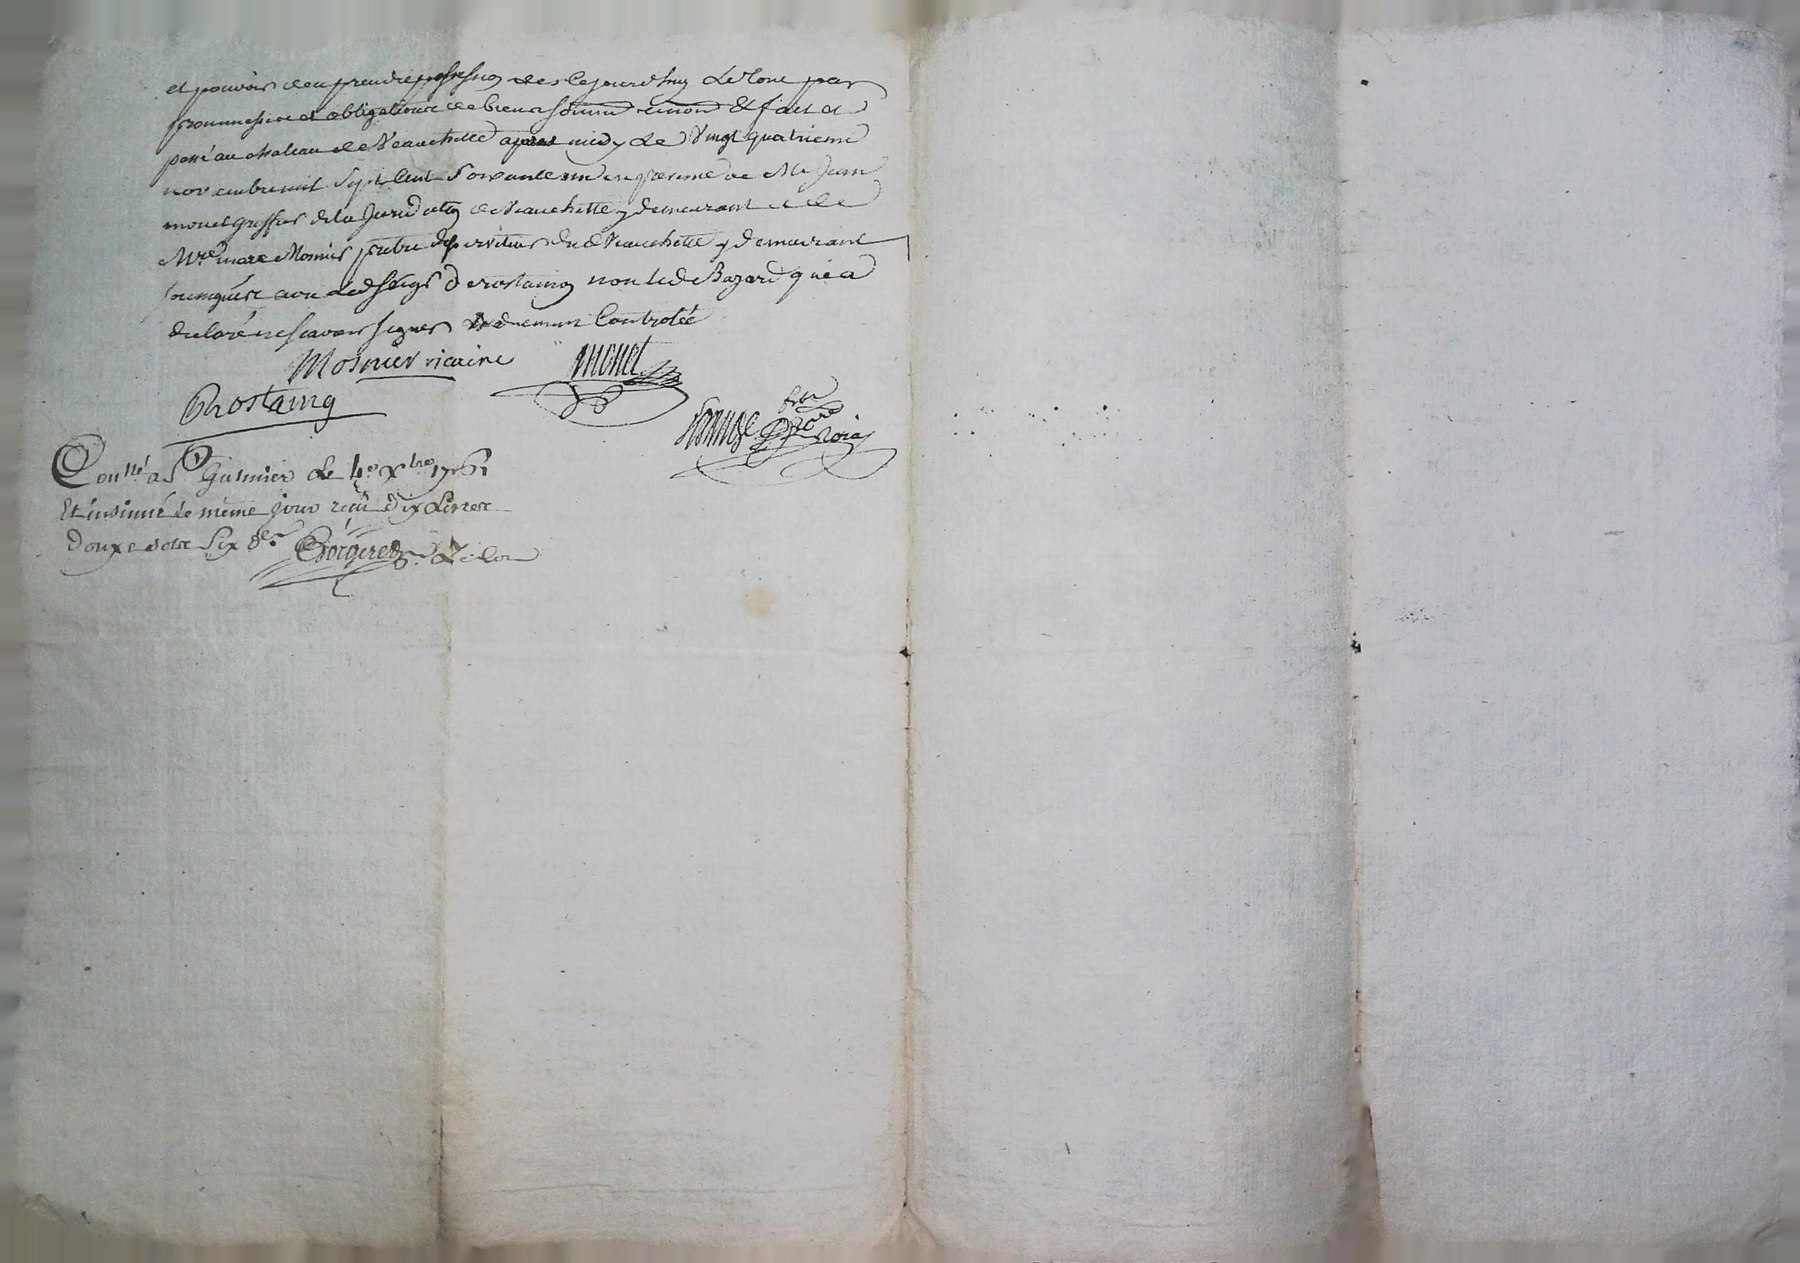 et pouvoir d'en prendre possession des ce jourd'huy le tout par
prommesses et obligations de biens soumis renon et fait et
passé au chateau de Veauchette apres midy le vingt quatrieme
novembre mil sept cent soixante un en presence de Me Jean
monet greffier de la Juridiction de Veauchette y demeurant et de
Mre marc Monier pretre desserviteur du d Veauchette y demeurant
soussignés avec led seigr de rostaing non led Bazard qui a
declaré ne scavoir signer de ce enquis Controlé
Mosnier vicaire monet
Rostaing
Conllé a St Galmier le 4e Xbre 1761
Et insinué le meme jour reçu dix Livres
douze sols six drs